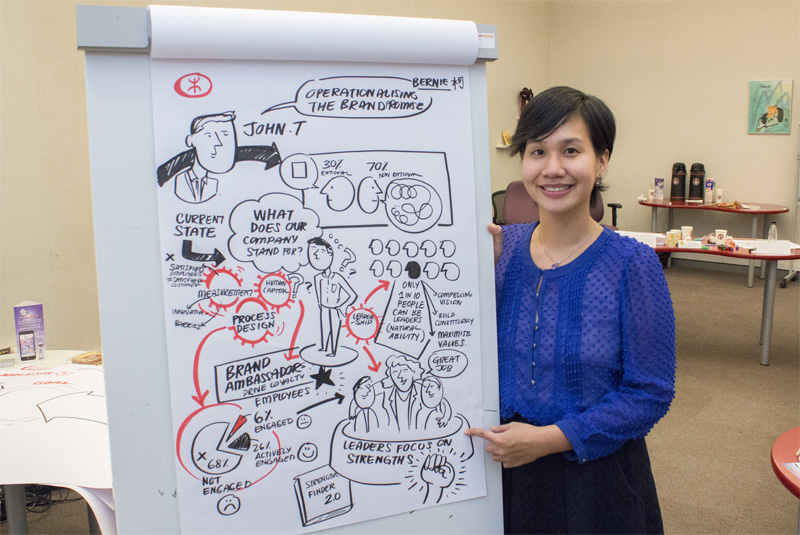 BERNIE 柯
OPERATIONALISING
THE BRAND PROMISE
JOHN.T
30%
RATIONAL
70%
NON RATIONAL
CURRENT
STATE
WHAT
DOES OUR
COMPANY
STAND FOR?
x SATISFIED
EMPLOYEES
= SATISFIED
CUSTOMERS
INNOVATIVE
MEASUREMENT
HUMAN
CAPITAL
PROCESS
DESIGN
LEADER
-SHIP
ONLY
1 IN 10
PEOPLE
CAN BE
LEADERS
(NATURAL
ABILITY)
COMPELLING
VISION
BUILD
CONSTITUENCY
MAXIMISE
VALUES.
GREAT
JOB
BRAND
AMBASSADORS
DRIVE LOYALTY
EMPLOYEES
6%
ENGAGED
26%
ACTIVELY
ENGAGED
x
68%
NOT
ENGAGED
STRENGTH
FINDER
2.0
LEADERS FOCUS ON
STRENGTHS